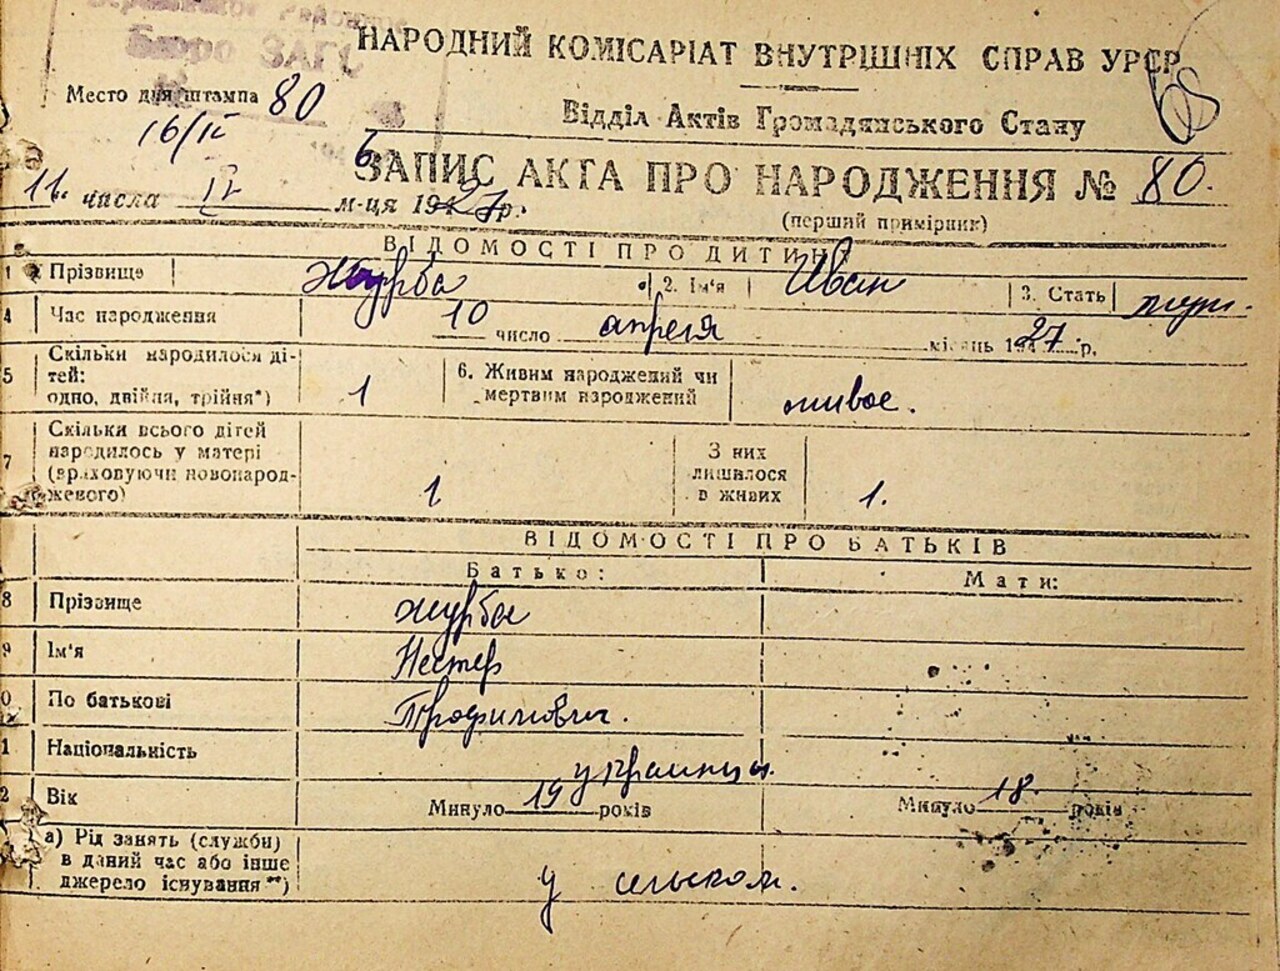 Бюро ЗАГС
НАРОДНИЙ КОМІСАРІАТ ВНУТРІШНІХ СПРАВ УРСР
Место для штампа 80
Відділ Актів Громадянського Стану
16/IV
ЗАПИС АКТА ПРО НАРОДЖЕННЯ № 80.
11. числа IV м-ця 1927р.
(перший примірник)
ВІДОМОСТІ ПРО ДИТИНУ
1 Прізвище Журба 2. Ім'я Иван 3. Стать муж.
4 Час народження 10 число апреля місяць 1927 р.
5 Скільки народилося ді-
тей:
одно, двійля, трійня*) 1
6. Живим народжений чи
мертвим народжений живое.
7 Скільки всього дітей
народилось у матері
(враховуючи новонарод-
женого) 1
З них
лишилося
в живих 1.
ВІДОМОСТІ ПРО БАТЬКІВ
Батько: Мати:
8 Прізвище Журба
9 Ім'я Нестер
0 По батькові Трофимович.
1 Національність украинцы.
2 Вік Минуло 19 років Минуло 18 років
а) Рід занять (служби)
в даний час або інше
джерело існування**) у сельхом.